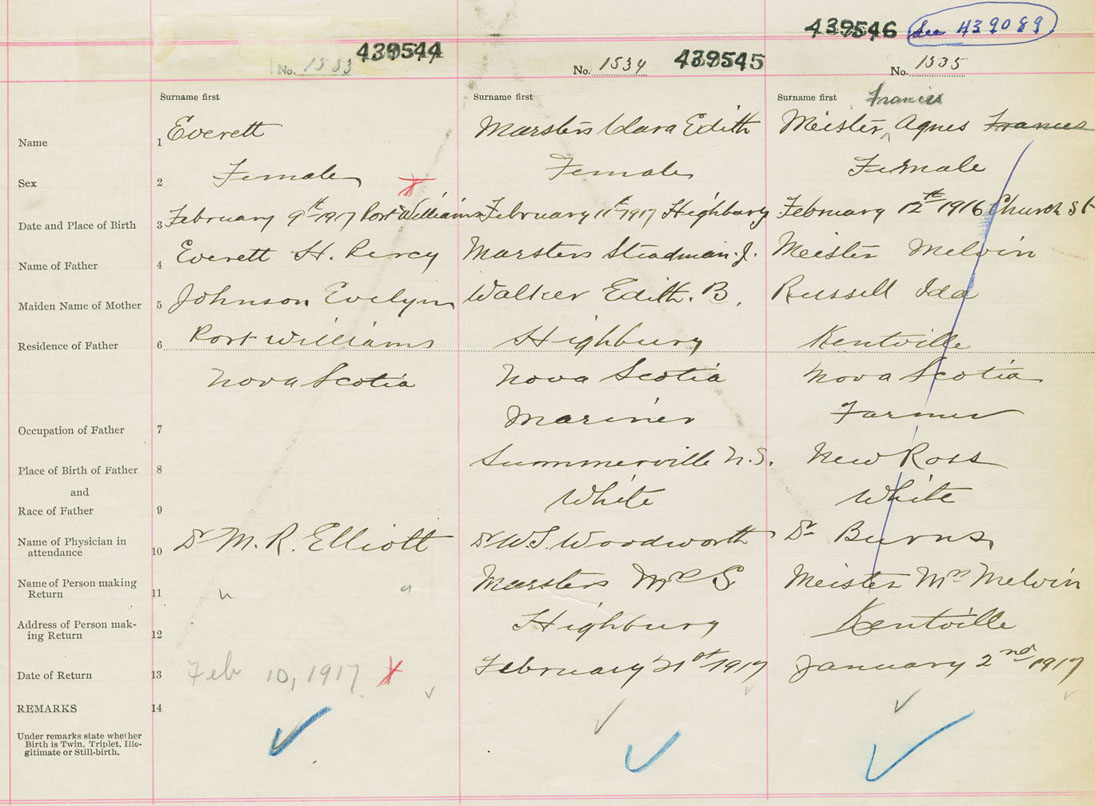 439546 See 439089
439544
No. 1533
No. 1534 439545
No. 1535
Surname first
Surname first
Surname first Francis
Name 1 Everett Marsters Clara Edith Meister ^ Agnes Frances
Sex 2 Female X Female Female
Date and Place of Birth 3 February 9th 1917 Port Williams February 11th 1917 Highbury February 12th 1916 Church St
Name of Father 4 Everett H. Percy Marsters Steadman. J. Meister Melvin
Maiden Name of Mother 5 Johnson Evelyn Walker Edith. B. Russell Ida
Residence of Father 6 Port Williams Highbury Kentville
Nova Scotia Nova Scotia Nova Scotia
Occupation of Father 7 Mariner Farmer
Place of Birth of Father 8 Summerville N.S. New Ross
and
Race of Father 9 White White
Name of Physician in
attendance 10 Dr M. R. Elliott Dr W. S. Woodworth Dr Burns
Name of Person making
Return 11 " " Marsters Mrs S Meister Mrs Melvin
Address of Person mak-
ing Return 12 Highbury Kentville
Date of Return 13 Feb 10, 1917 X February 21st 1917 January 2nd 1917
REMARKS 14
Under remarks state whether
Birth is Twin, Triplet, Ille-
gitimate or Still-birth.